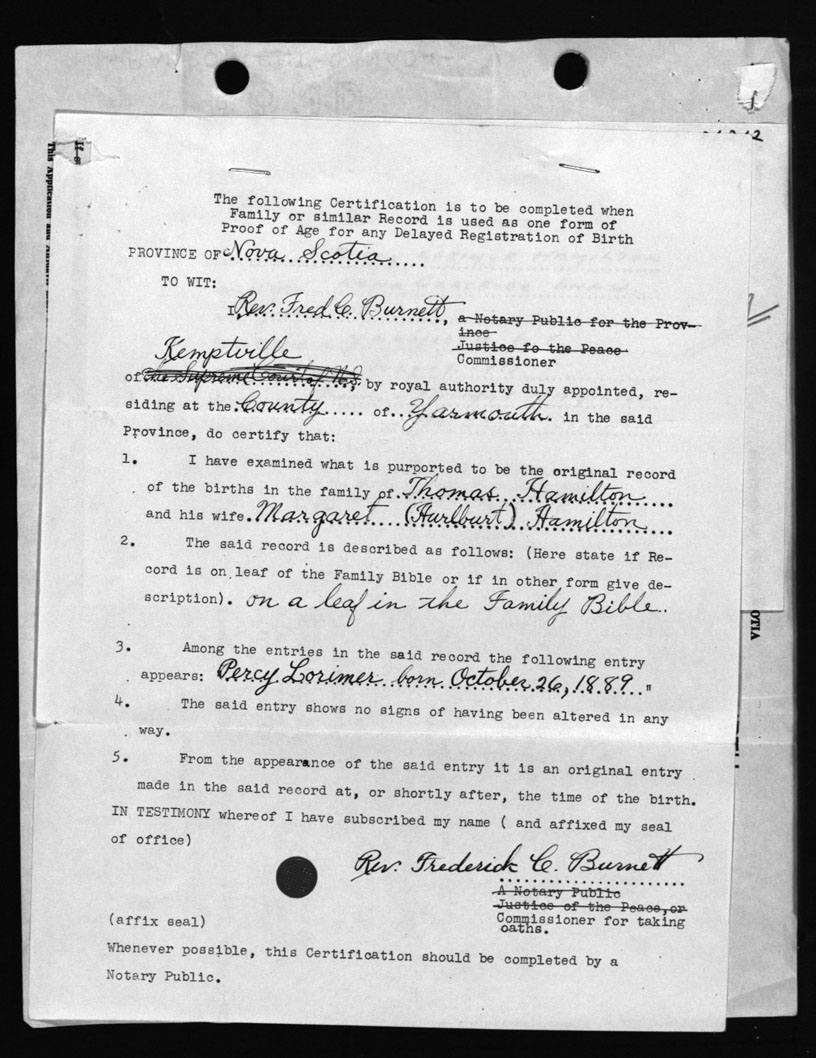 The following Certification is to be completed when
Family or similar Record is used as one form of
Proof of Age for any Delayed Registration of Birth
PROVINCE OF Nova Scotia
TO WIT:
I Rev. Fred C. Burnett, a Notary Public for the Prov-
ince
Justice fo the Peace
Commissioner
Kemptville
of the Supreme Court of N.S, by royal authority duly appointed, re-
siding at the County ..... of Yarmouth. in the said
Province, do certify that:
1. I have examined what is purported to be the original record
of the births in the family of Thomas Hamilton
and his wife Margaret (Hurlburt) Hamilton
2. The said record is described as follows: (Here state if Re-
cord is on leaf of the Family Bible or if in other form give de-
scription). on a leaf in the Family Bible.
3. Among the entries in the said record the following entry
appears: Percy Lorimer born October 26, 1889 "
4. The said entry shows no signs of having been altered in any
way.
5. From the appearance of the said entry it is an original entry
made in the said record at, or shortly after, the time of the birth.
IN TESTIMONY whereof I have subscribed my name ( and affixed my seal
of office)
Rev. Frederick C. Burnett
A Notary Public
Justice of the Peace, or
Commissioner for taking
oaths.
(affix seal)
Whenever possible, this Certification should be completed by a
Notary Public.
This Application and
OTIA